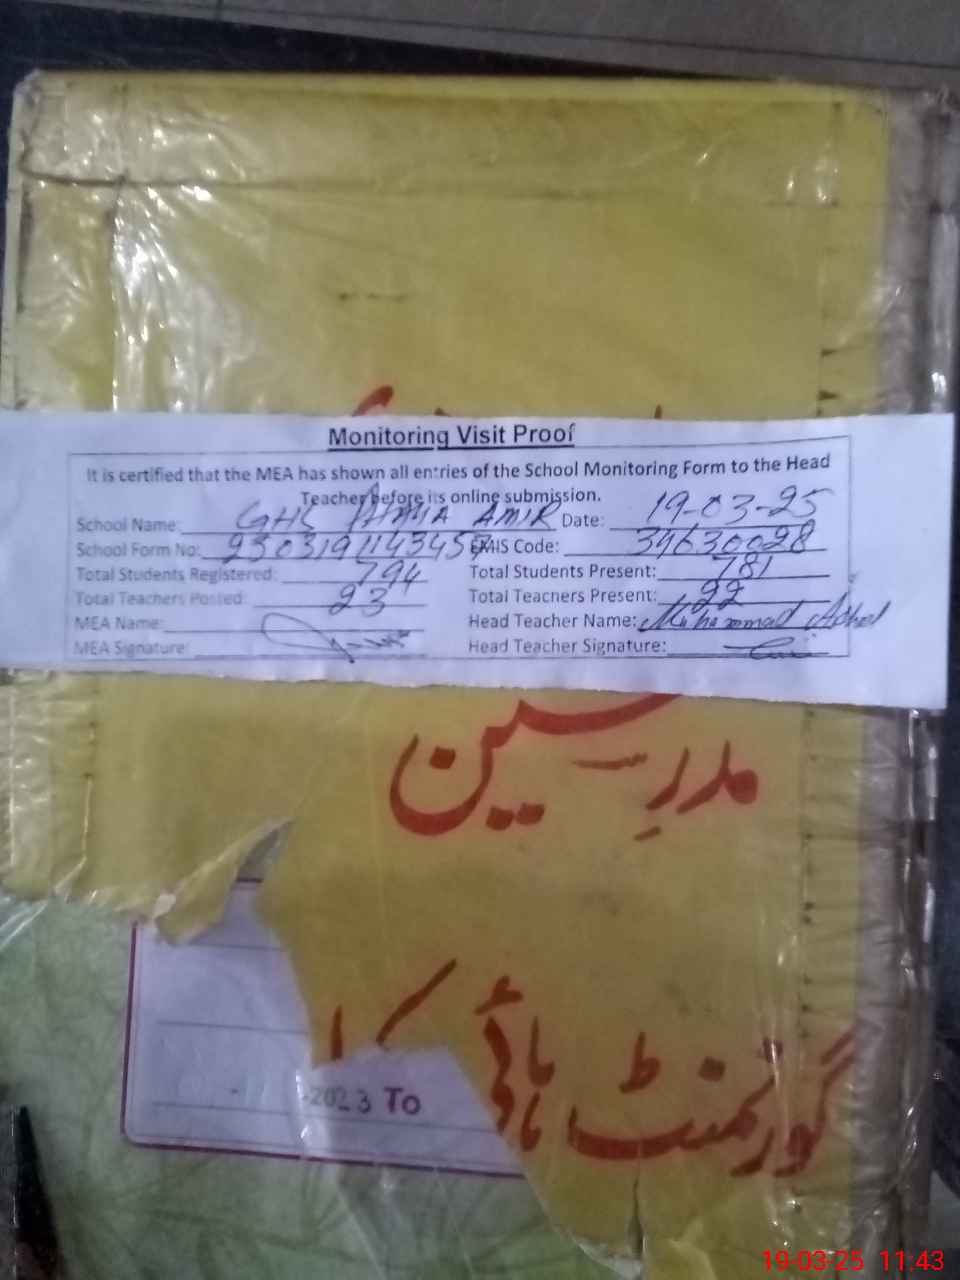 Monitoring Visit Proof
It is certified that the MEA has shown all entries of the School Monitoring Form to the Head
Teacher before its online submission.
School Name: GHS AMIR Date: 19-03-25
School Form No: EMIS Code: 34630028
Total Students Registered: 794 Total Students Present: 781
Total Teachers Posted: 23 Total Teachers Present: 22
MEA Name: Head Teacher Name: Muhammad
MEA Signature: Head Teacher Signature:
مدرسین
گورنمنٹ ہائی
-2023 To
19-03-25 11:43